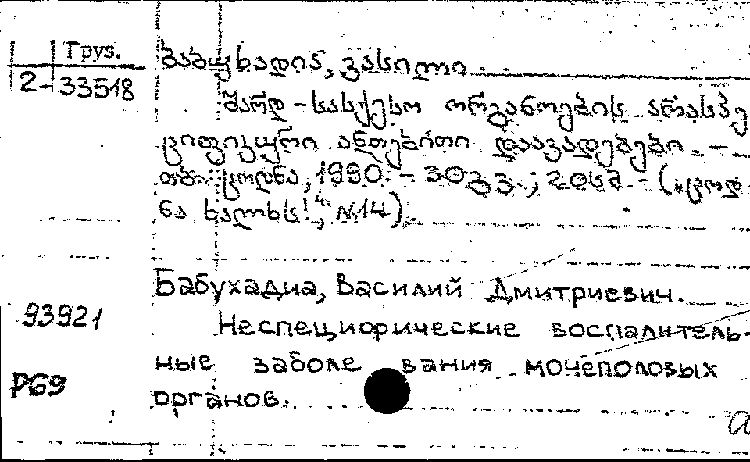 Груз.
2-33518
ბაბუხადია, ვასილი
შარდ-სასქესო ორგანოების არასპე
ციფიკური ანთებითი დაავადებები. –
თბ.: ცოდნა, 1990. – 30გვ.; 20სმ – („ცოდ
ნა ხალხს!", №14).
Бабухадиа, Василий Дмитриевич.
93921
Неспецифические воспалитель-
ные заболе вания мочеполовых
P69
органов.